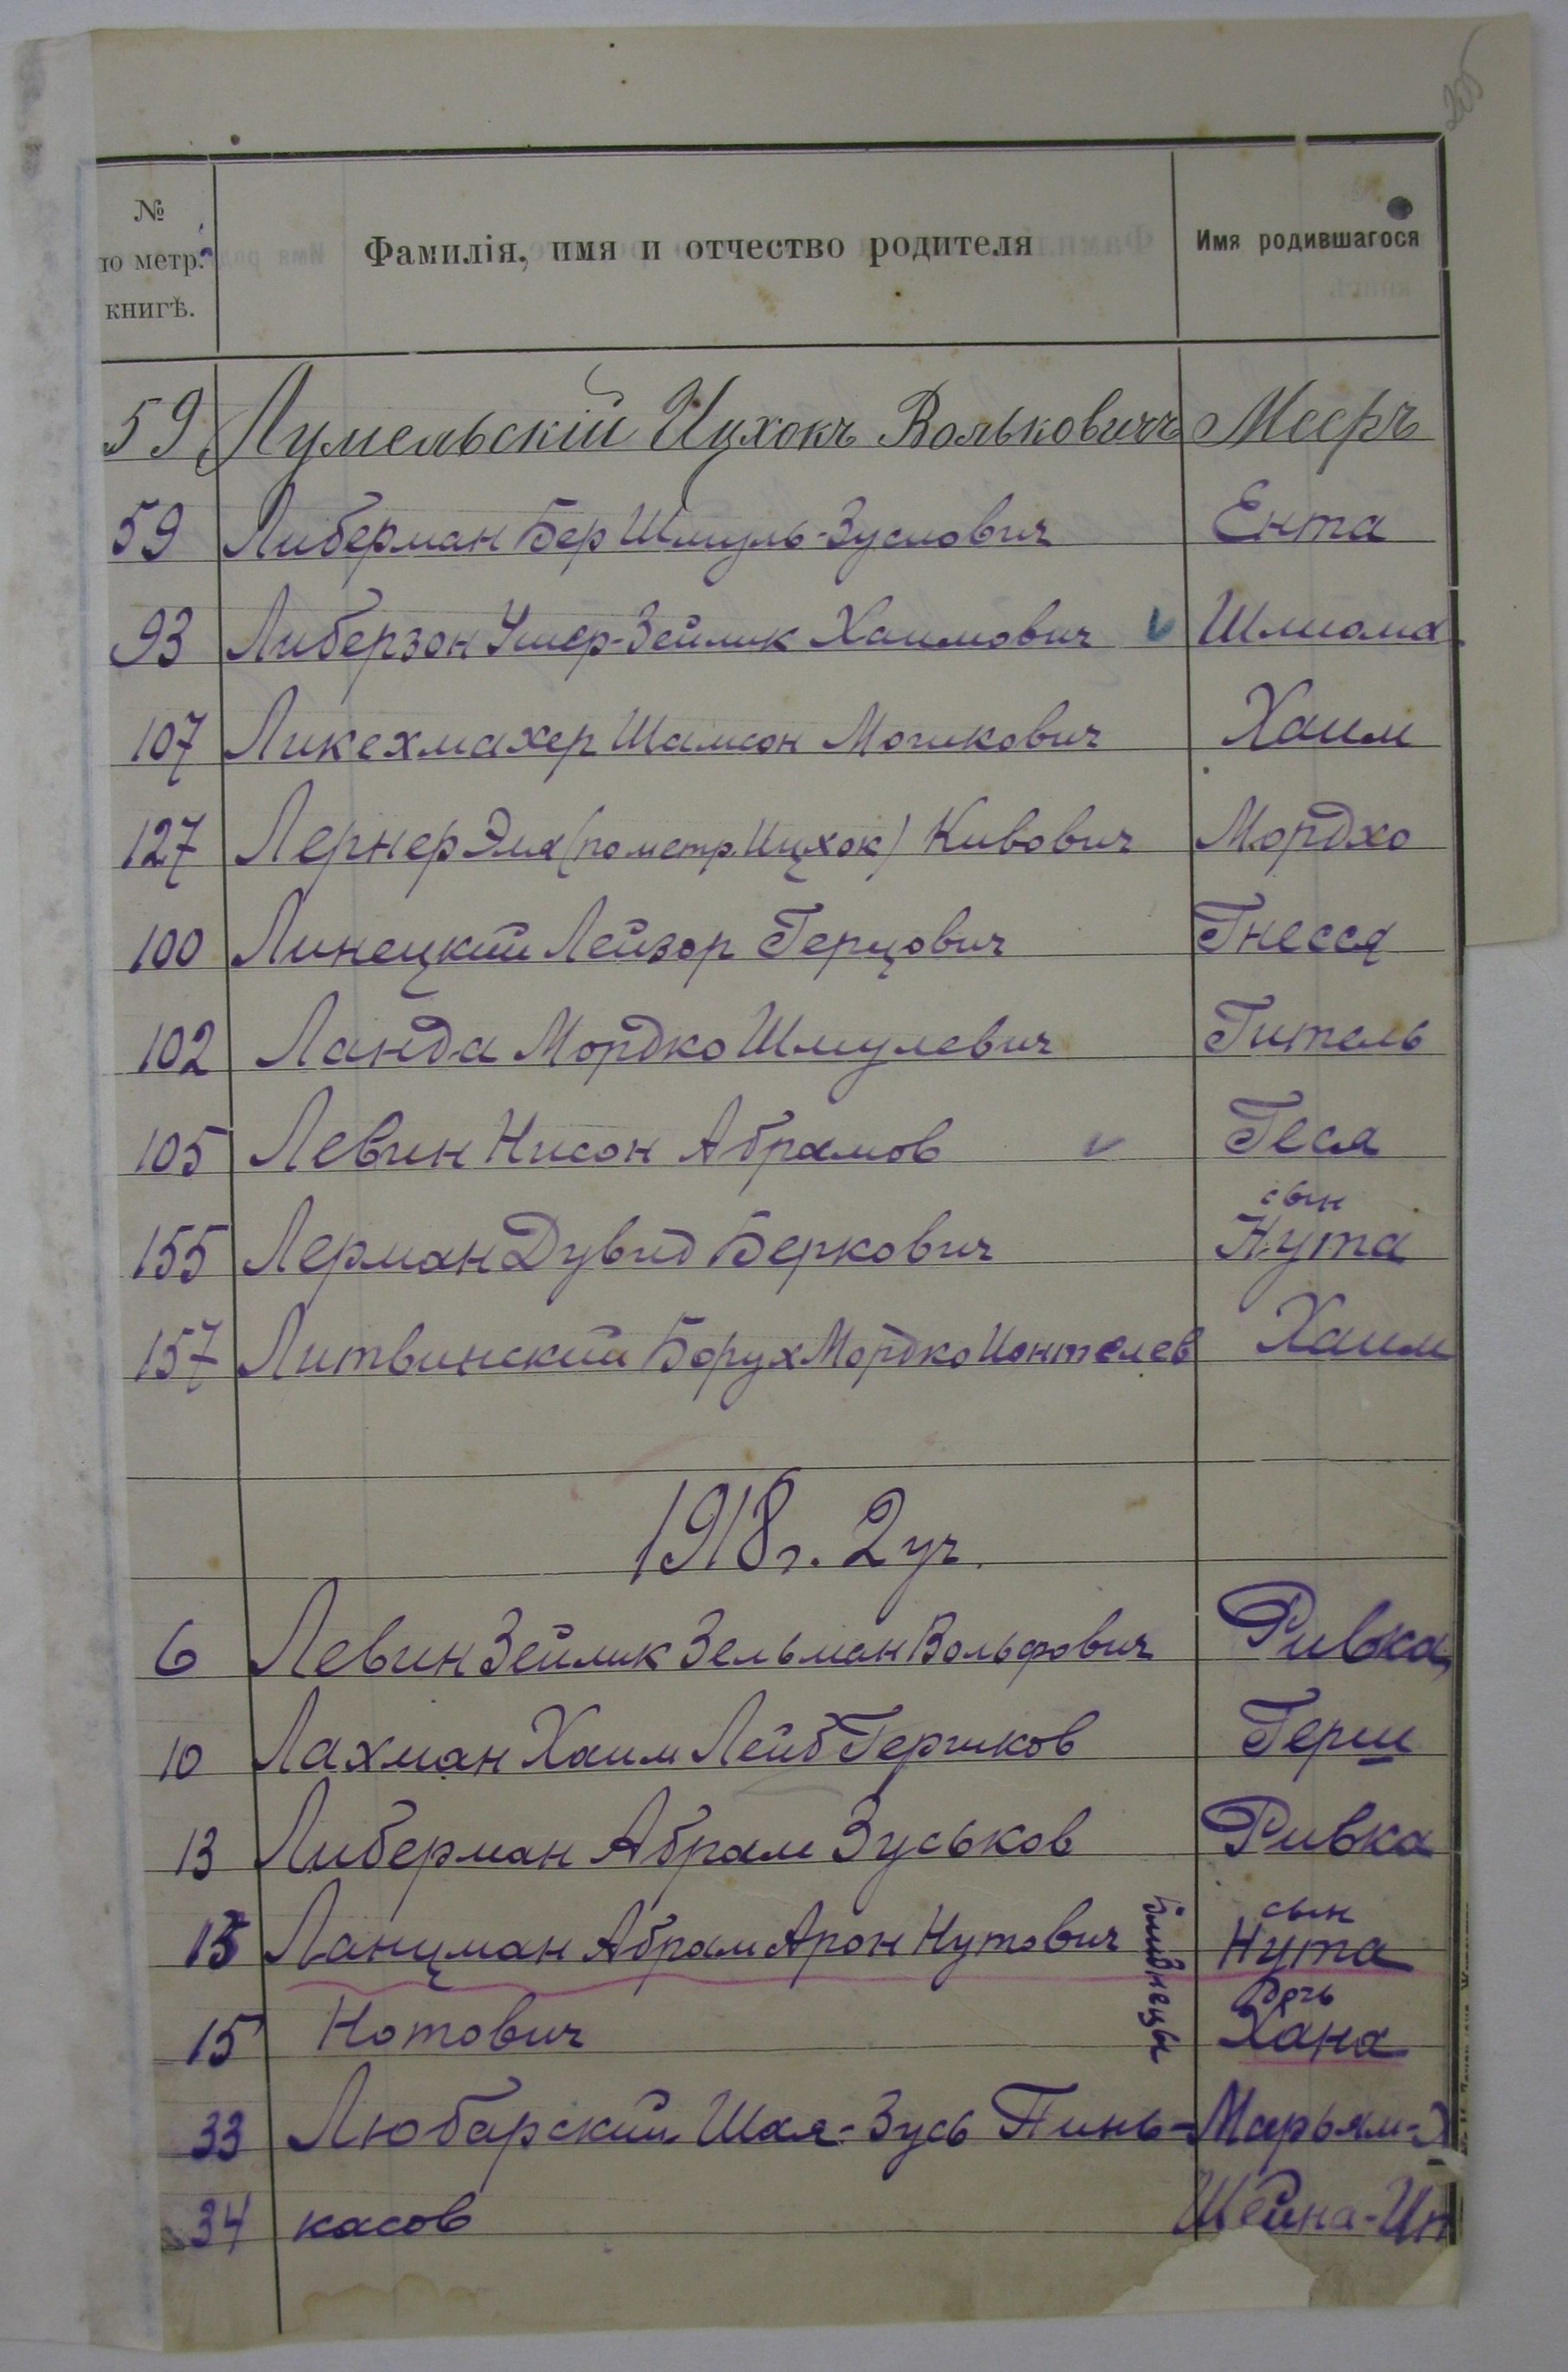 205
№
по метр.
книгѣ.
Фамилія, имя и отчество родителя
Имя родившагося
59 Лумельскій Ицхокъ Вольковичъ Мееръ
59 Либерман Бер Шмуль-Зуслович Ента
93 Либерзон Ушер-Зейлик Хаимович Шлиома
107 Ликехмахер Шамсон Мошкович Хаим
127 Лернер Эля (по метр. Ицхок) Кивович Мордхо
100 Линецкий Лейзор Герцович Гнеся
102 Ланда Мордко Шмулевич Гитель
105 Левин Нисон Абрамов Геся
сын
155 Лерман Дувид Беркович Нута
157 Литвинский Борух Мордко Ионтелев Хаим
1918 г. 2 уч.
6 Левин Зейлик Зельман Вольфович Ривка
10 Лахман Хаим Лейб Гершков Герш
13 Либерман Абрам Зуськов Ривка
сын
15 Ланцман Абрам Арон Нутович Нута
дочь
15 Нотович Хана
33 Любарский Шая-Зусь Пинь- Марьям-
34 касов Шейна-